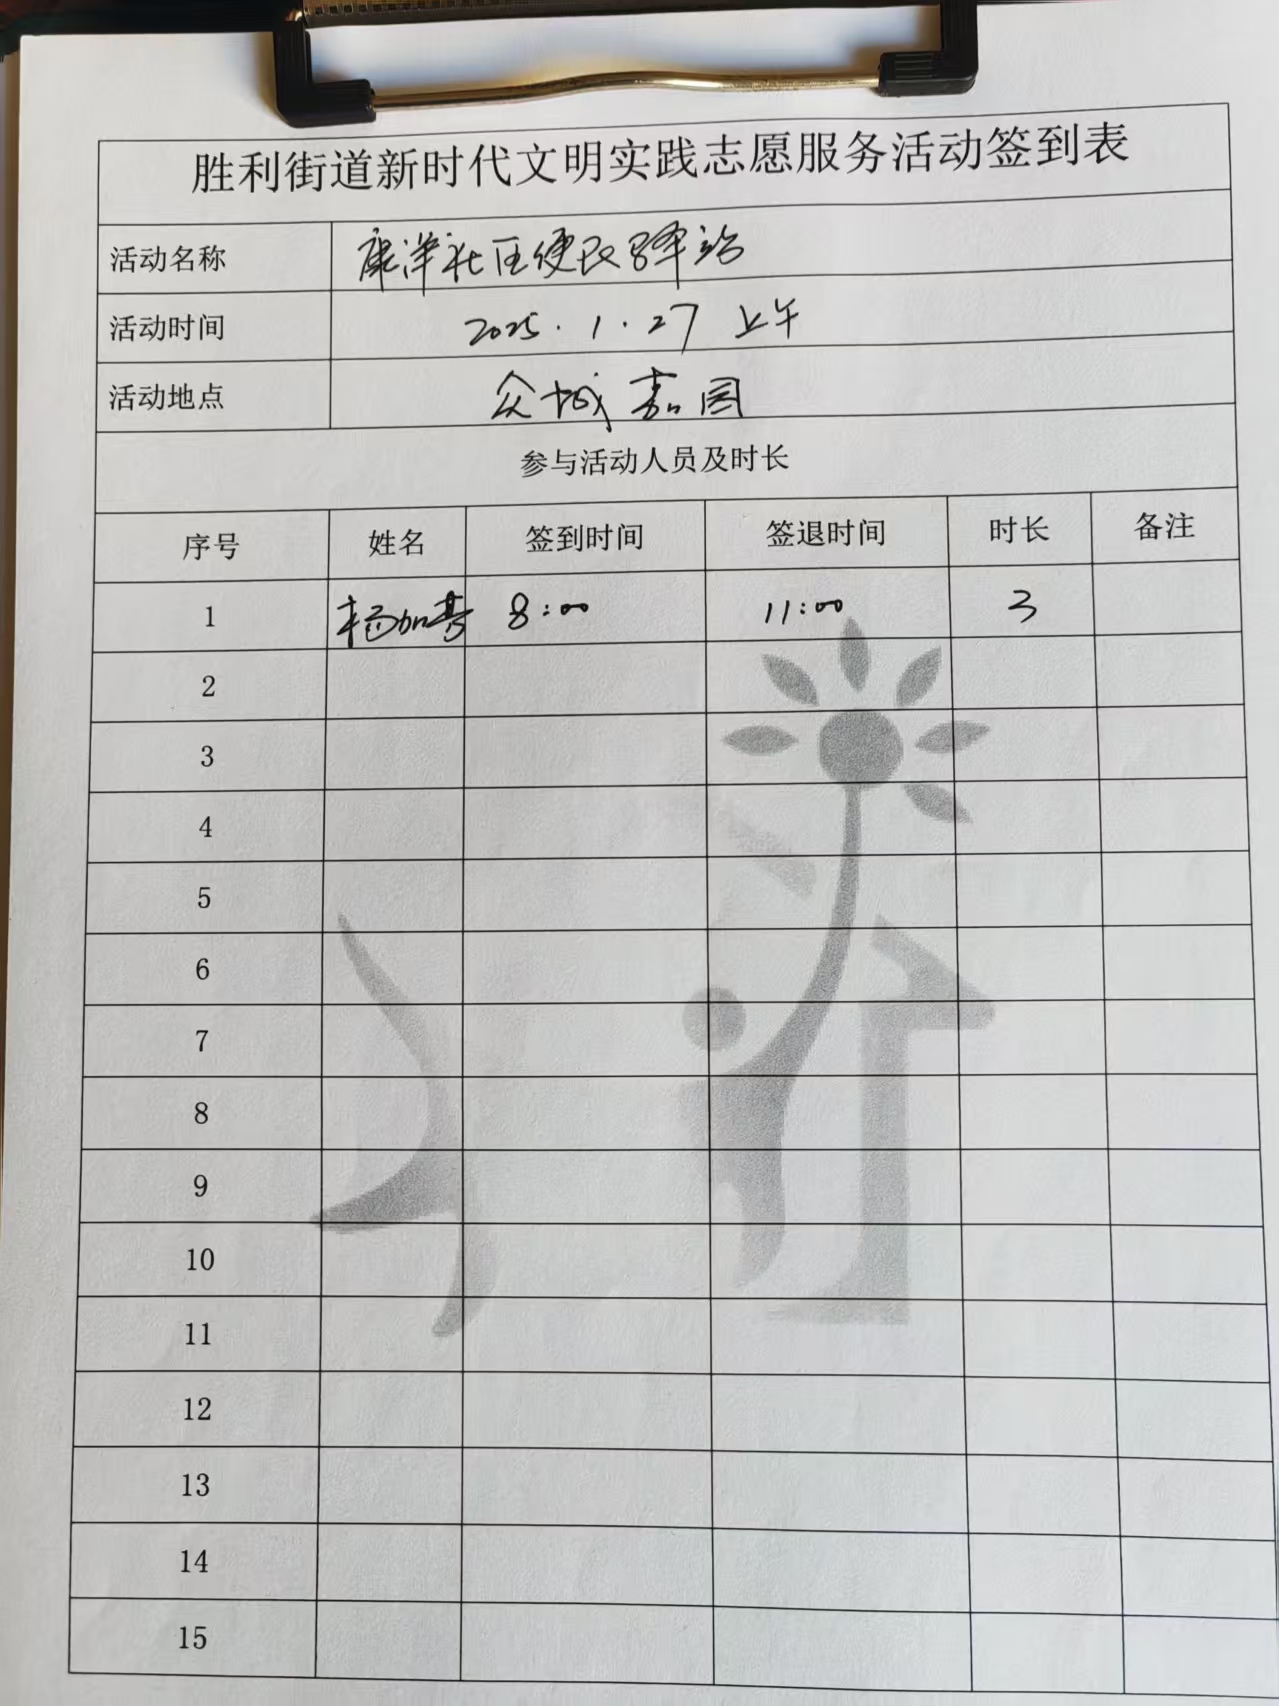 胜利街道新时代文明实践志愿服务活动签到表
活动名称 康洋社区便民驿站
活动时间 2025.1.27 上午
活动地点 众城嘉园
参与活动人员及时长
序号 姓名 签到时间 签退时间 时长 备注
1 杨加 8:00 11:00 3
2
3
4
5
6
7
8
9
10
11
12
13
14
15